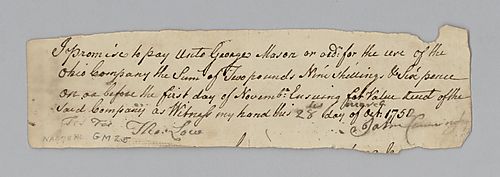 I promise to pay Unto George Mason or ordr. for the use of the
Ohio Company the Sum of Two pounds Nine Shillings & Six pence
on or before the first day of Novembr. Ensuing for Value Recd of the
Said Company as Witness my hand this 28 day of Octr. 1750
Thos Low
GM 25